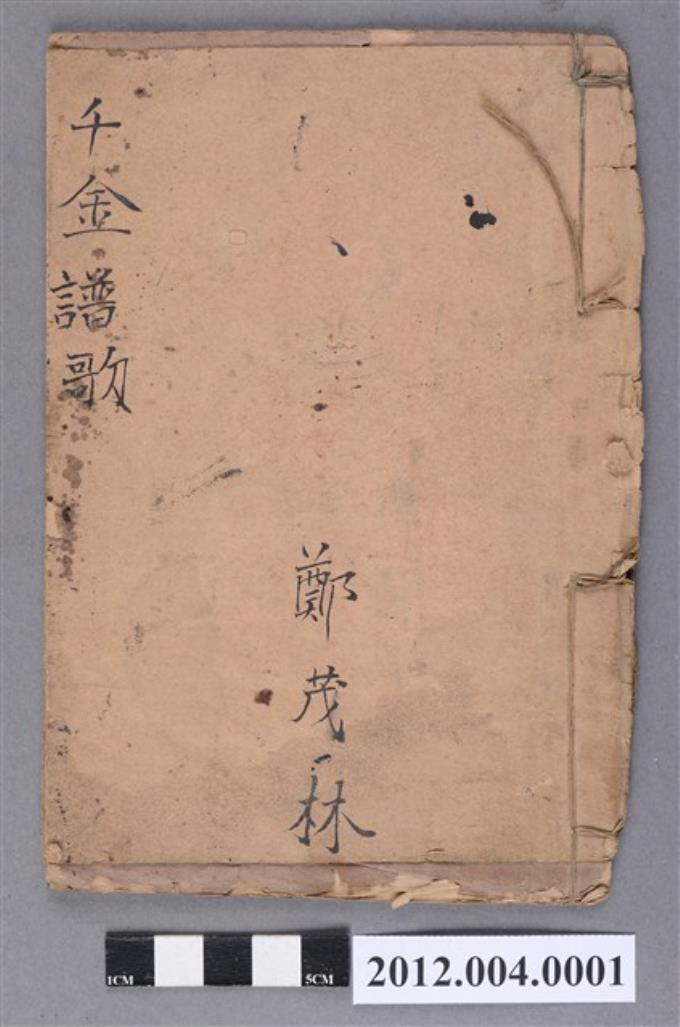 千金譜歌
鄭茂林
1CM 5CM
2012.004.0001